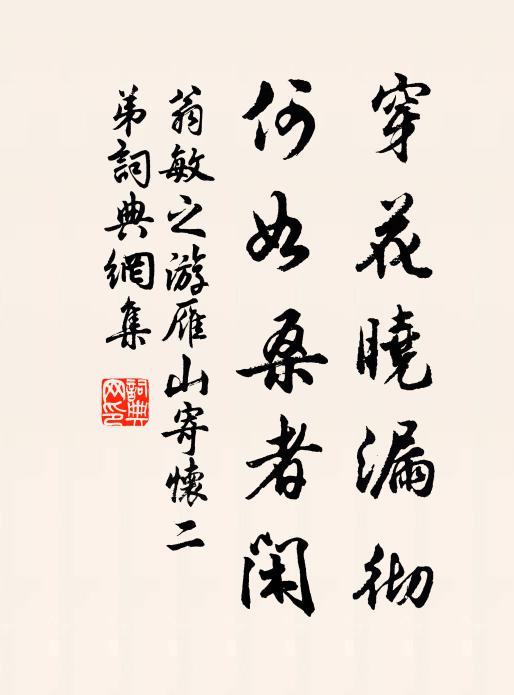 穿花曉漏彻
何如桑者閑
翁敏之游雁山寄懷二
弟詞典網集
詞典
网印